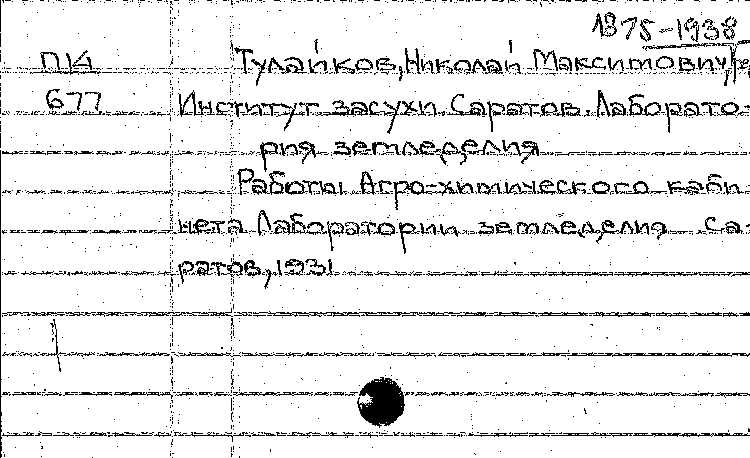 1875-1938
П14 Тулайков, Николай Максимович, ре
677 Институт засухи. Саратов. Лаборато-
рия земледелия
Работы Агро-химического каби-
нета Лаборатории земледелия Са-
ратов, 1931